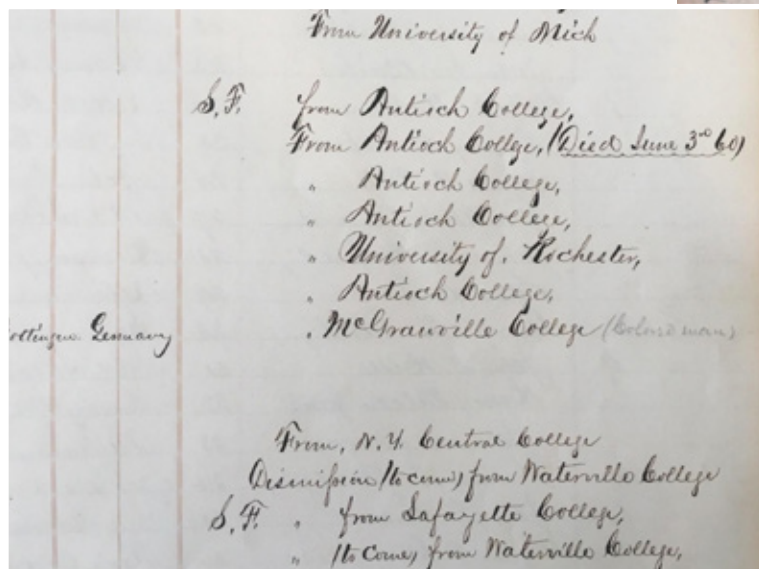 From University of Mich
S.F. from Antioch College,
From Antioch Collge, (Died June 3rd 60)
" Antioch College,
" Antioch College,
" University of. Rochester,
" Antioch College,
Germany " McGrawville College (Colord man)
From, N.Y. Central College
Dismission (to come) from Waterville College
S.F. " from Lafayette College,
" (to come) from Waterville College,